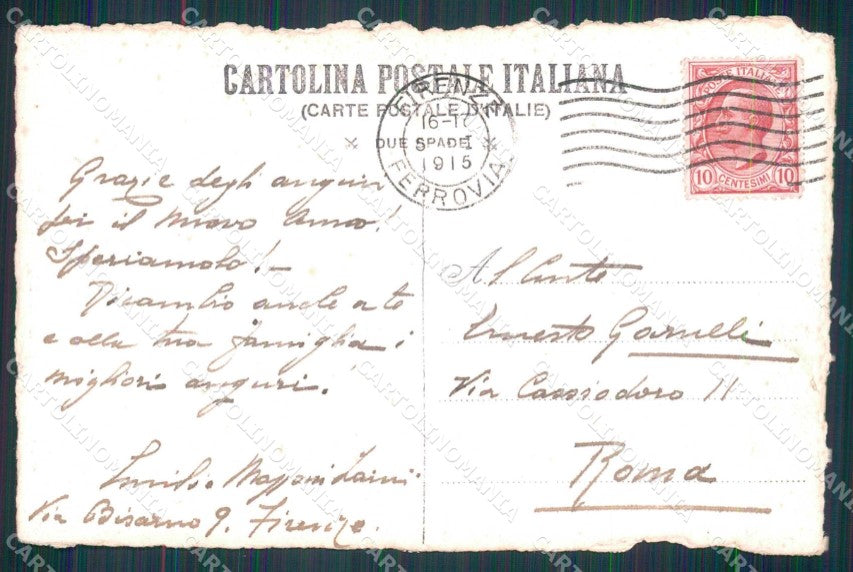 CARTOLINA POSTALE ITALIANA
(CARTE POSTALE D'ITALIE)
FIRENZE
16-17
1915
FERROVIA
POSTE ITALIANE
10 CENTESIMI 10
Grazie degli auguri
per il nuovo Anno!
Speriamolo!-
Ricambio anche a te
e alla tua famiglia i
migliori auguri.
Emilio
Via Bisarno 9. Firenze.
Al Conte
Ernesto Garulli
Via Cassiodoro 11
Roma
CARTOLINOMANIA